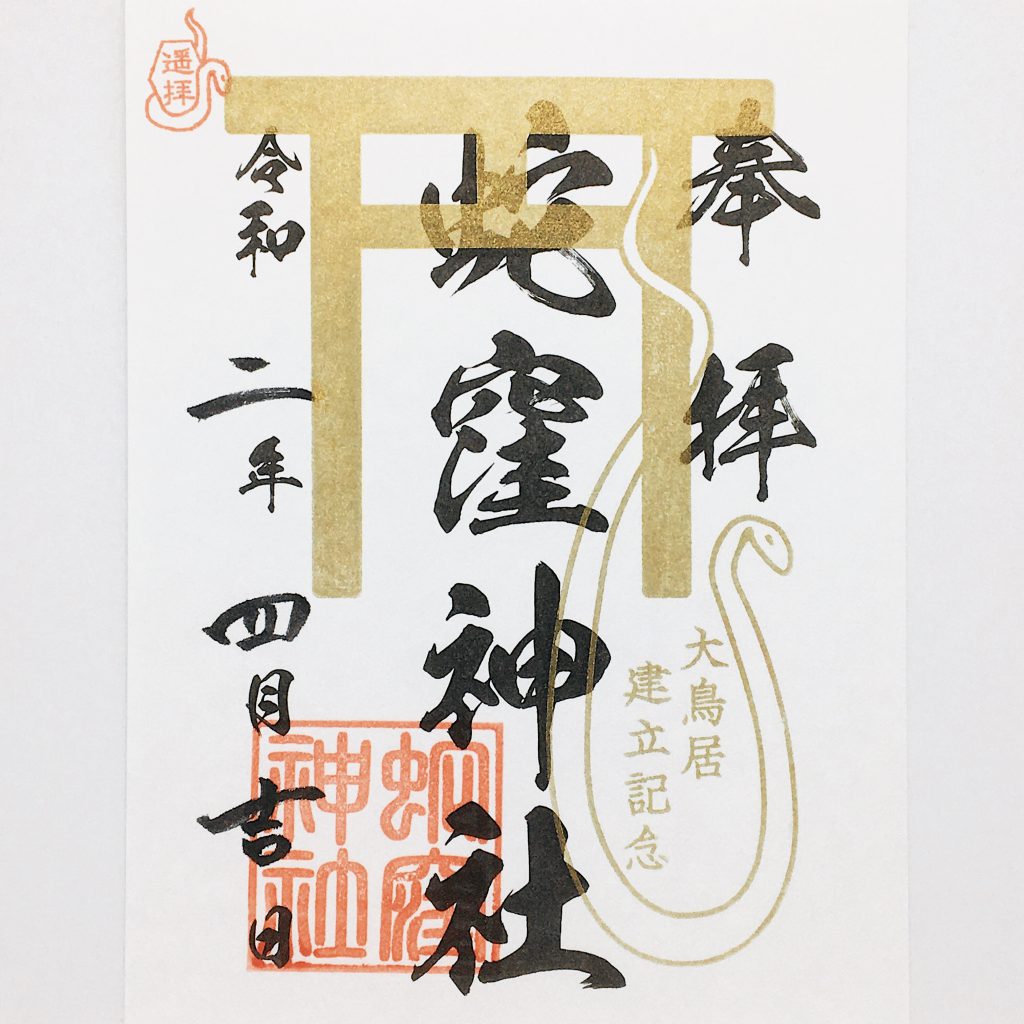 奉拝
大鳥居
建立記念
蛇窪神社
令和二年四月吉日
遥拝
蛇窪
神社